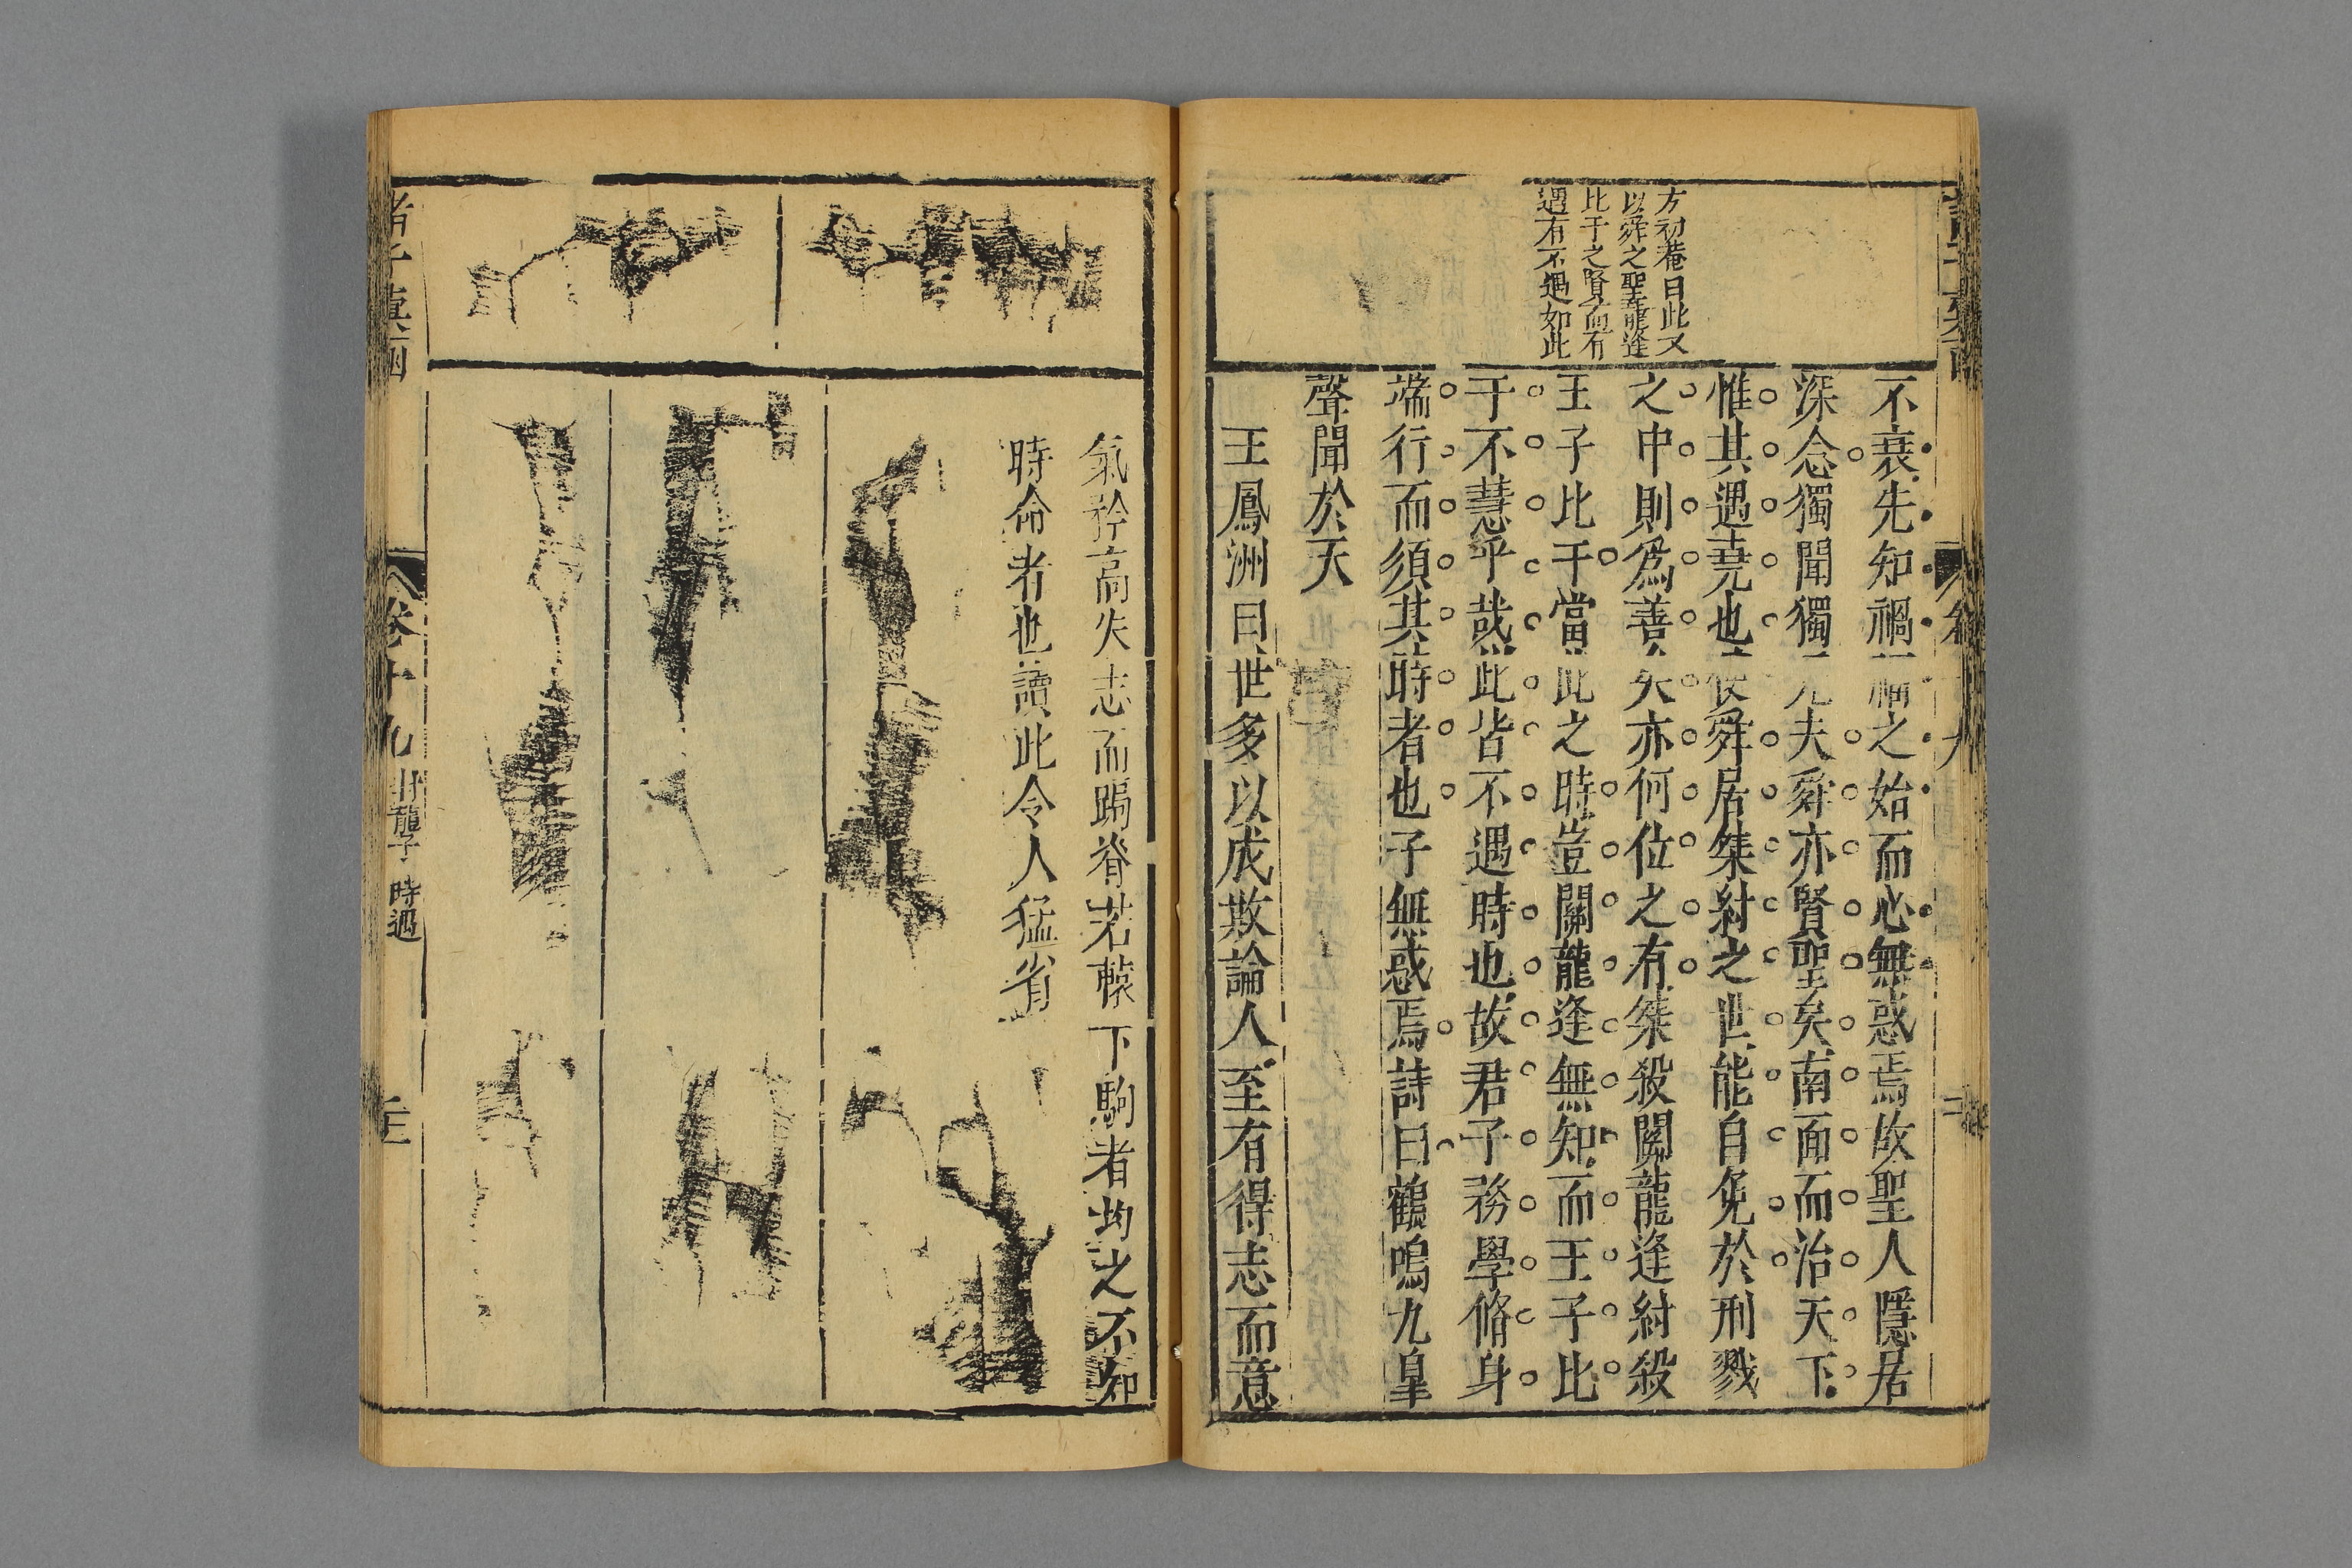 方初菴曰此又
以舜之聖龍逢
比干之賢而有
遇有不遇如此
不衰先知禍福之始而心無惑焉故聖人隱居
深念獨聞獨見夫舜亦賢聖矣南面而治天下
惟其遇堯也使舜居桀紂之世能自免於刑戮
之中則為善矣亦何位之有桀殺關龍逢紂殺
王子比干當此之時豈關龍逢無知而王子比
干不慧乎哉此皆不遇時也故君子務學脩身
端行而須其時者也子無惑焉詩曰鶴鳴九皐
聲聞於天
王鳳洲曰世多以成敗論人至有得志而意
氣矜高失志而跼脊若轅下駒者均之不知
時命者也讀此令人猛省
卷十九
時遇